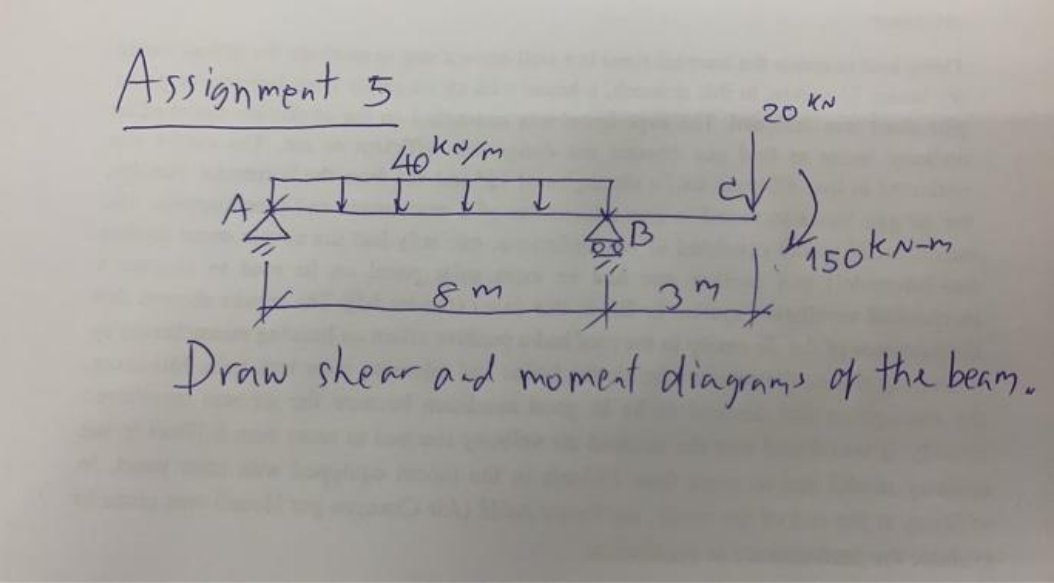 Assignment 5
20 KN
40 KN/m
A
C
B
150 KN-m
8 m
3 m
Draw shear and moment diagrams of the beam.